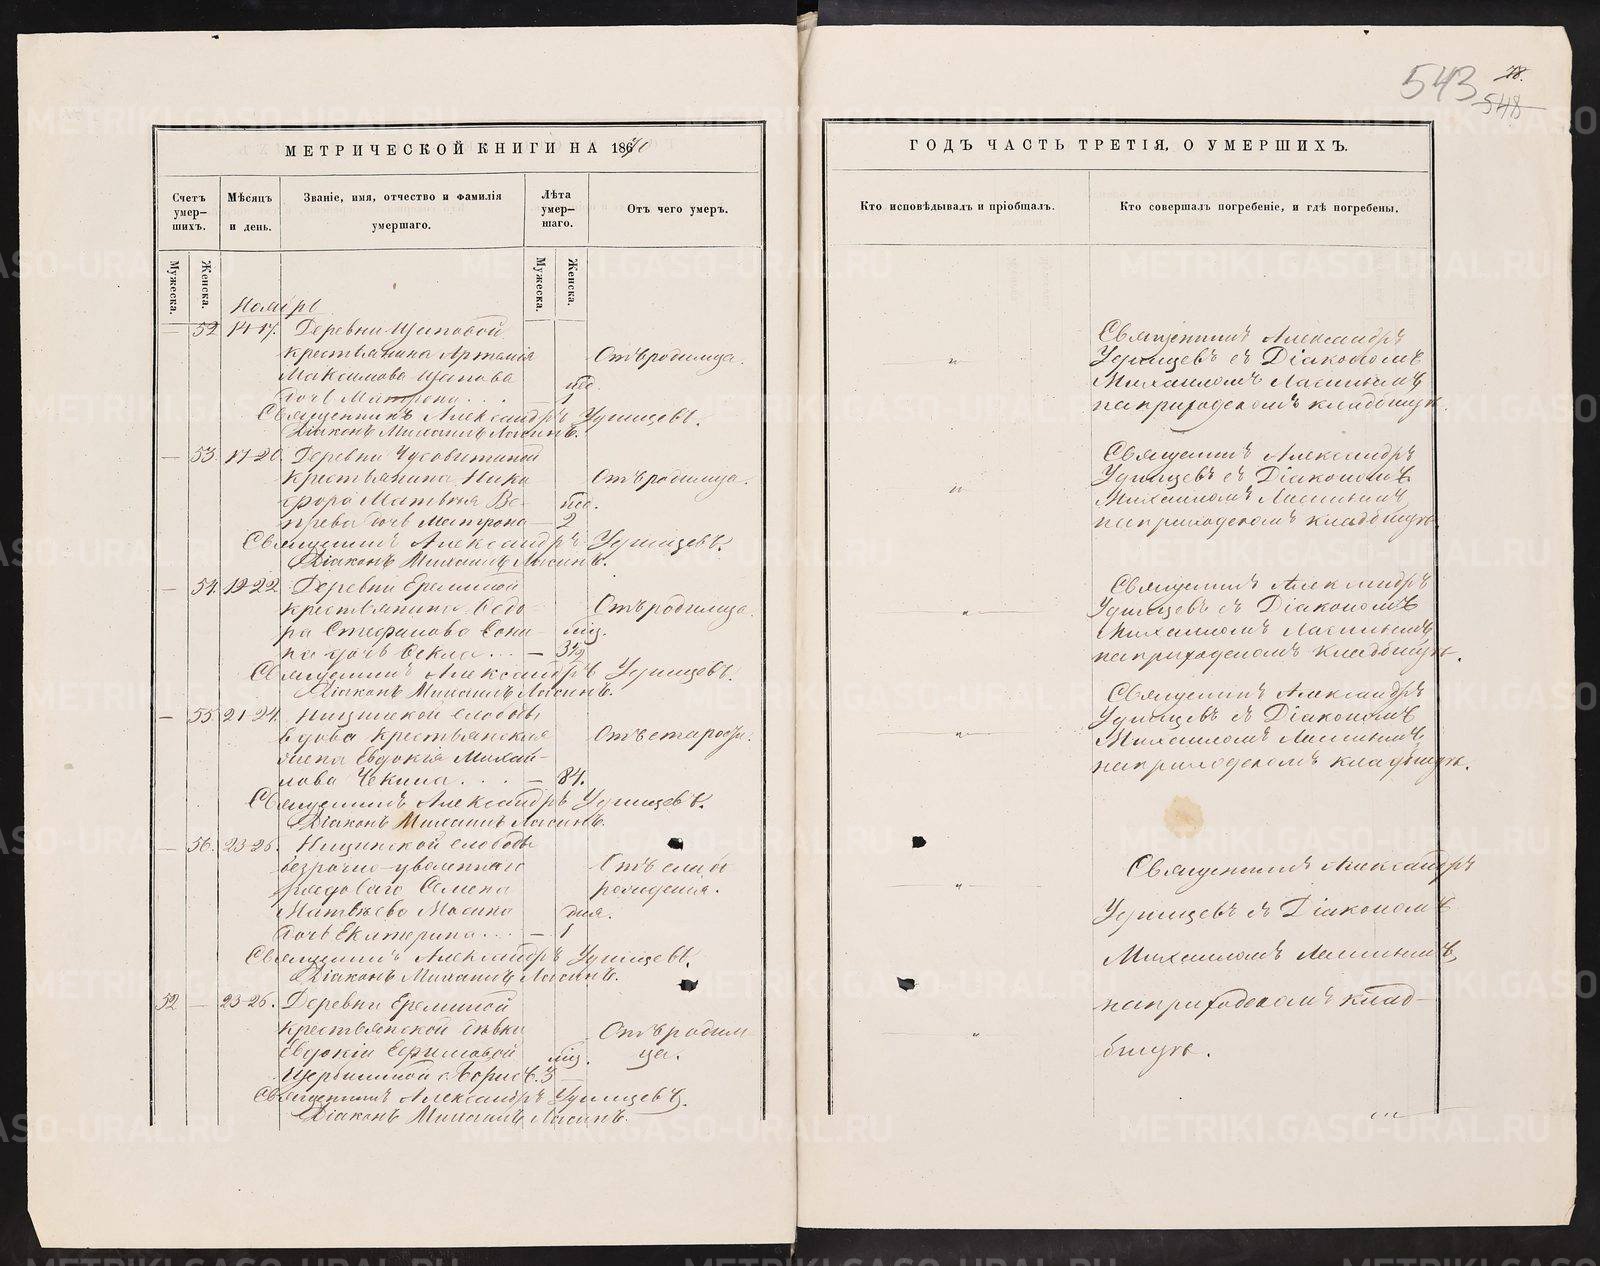 543
548
МЕТРИЧЕСКОЙ КНИГИ НА 1870
Счетъ умер-шихъ.
Мѣсяцъ и день.
Званіе, имя, отчество и фамилія умершаго.
Лѣта умер-шаго.
Отъ чего умеръ.
Мужеска.
Женска.
Мужеска.
Женска.
Ноябрь
— 52 14-17. Деревни Щаповой
крестьянина Артемія Отъ родимца.
Максимова Щапова
дочь Матрона . . . 1
Священникъ Александръ Удинцевъ.
Діаконъ Михаилъ Ласинъ.
— 53. 17-20. Деревни Чусовитиной
крестьянина Ники- Отъ родимца.
фора Матвѣя Ве-
прева дочь Матрона — 2
Священникъ Александръ Удинцевъ.
Діаконъ Михаилъ Ласинъ.
— 54. 19-22. Деревни Ереминой
крестьянина Ѳедо- Отъ родимца.
ра Стефанова мѣц.
дочь Ѳекла . . . — 3½
Священникъ Александръ Удинцевъ.
Діаконъ Михаилъ Ласинъ.
— 55 21-24. Ницинской слободы
вдова крестьянская Отъ старости.
жена Евдокія Михай-
лова Чекина . . . — 84.
Священникъ Александръ Удинцевъ.
Діаконъ Михаилъ Ласинъ.
— 56. 23-26. Ницинской слободы
безсрочно-уволеннаго Отъ слабо
рядоваго Семена рожденія.
Матвѣева Масина дня.
дочь Екатерина . . . — 1
Священникъ Александръ Удинцевъ.
Діаконъ Михаилъ Ласинъ.
52 — 23-26. Деревни Ереминой
крестьянской дѣвки Отъ родим
Евдокіи Ефимовой мѣц. ца.
Щербининой с. Борисъ. 3
Священникъ Александръ Удинцевъ.
Діаконъ Михаилъ Ласинъ.
ГОДЪ ЧАСТЬ ТРЕТІЯ, О УМЕРШИХЪ.
Кто исповѣдывалъ и пріобщалъ.
Кто совершалъ погребеніе, и гдѣ погребены.
Священникъ Александръ
Удинцевъ съ Діакономъ
Михаиломъ Ласинымъ
на приходскомъ кладбищѣ.
Священникъ Александръ
Удинцевъ съ Діакономъ
Михаиломъ Ласинымъ,
на приходскомъ кладбищѣ.
Священникъ Александръ
Удинцевъ съ Діакономъ
Михаиломъ Ласинымъ,
на приходскомъ кладбищѣ.
Священникъ Александръ
Удинцевъ съ Діакономъ
Михаиломъ Ласинымъ
на приходскомъ кладбищѣ.
Священникъ Александръ
Удинцевъ съ Діакономъ
Михаиломъ Ласинымъ,
на приходскомъ клад-
бищѣ.
METRIKI.GASO-URAL.RU